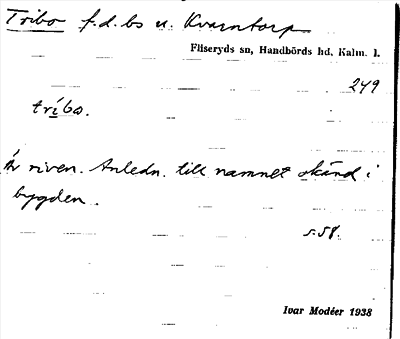 Tribo f.d. bs u. Kvarntorp
Fliseryds sn, Handbörds hd, Kalm. l.
249
tríbo.
Är riven. Anledn. till namnet okänd i
bygden.
s. 58.
Ivar Modéer 1938